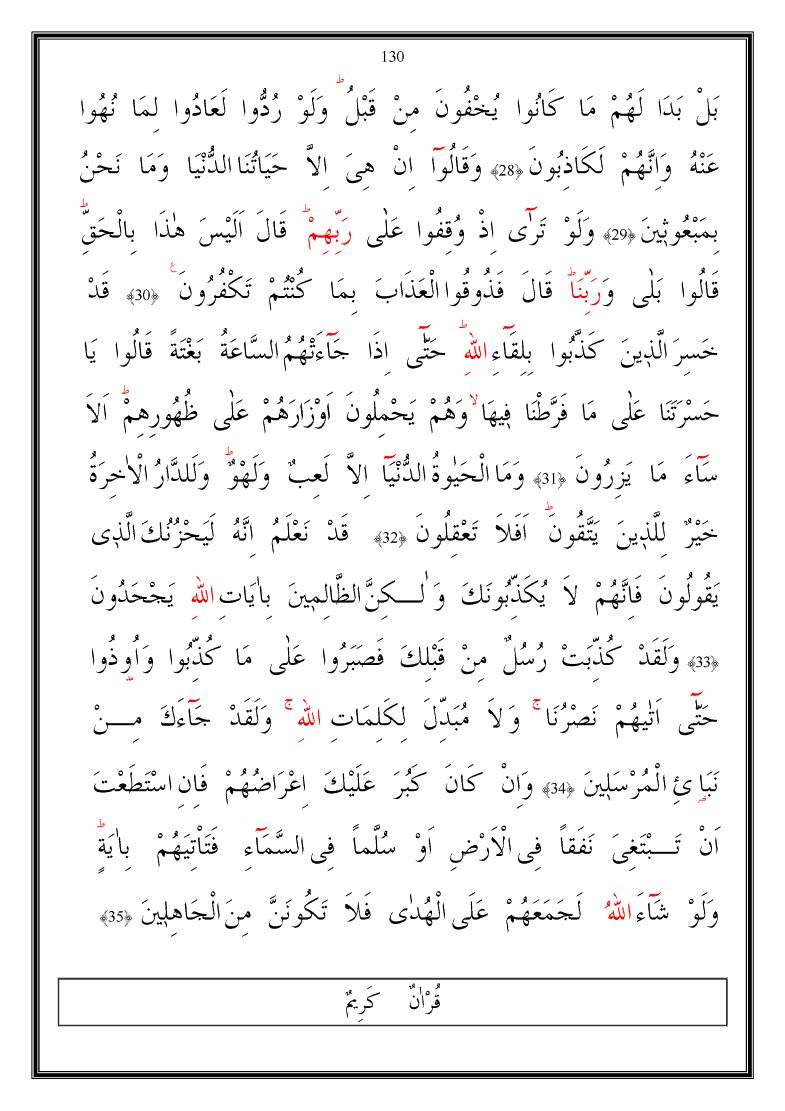 130
بَلْ بَدَا لَهُمْ مَا كَانُوا يُخْفُونَ مِنْ قَبْلُۜ وَلَوْ رُدُّوا لَعَادُوا لِمَا نُهُوا
عَنْهُ وَاِنَّهُمْ لَكَاذِبُونَ ﴿28﴾ وَقَالُوٓا اِنْ هِىَ اِلاَّ حَيَاتُنَا الدُّنْيَا وَمَا نَحْنُ
بِمَبْعُوثٖينَ ﴿29﴾ وَلَوْ تَرٰٓى اِذْ وُقِفُوا عَلٰى رَبِّهِمْؕ قَالَ اَلَيْسَ هٰذَا بِالْحَقِّؕ
قَالُوا بَلٰى وَرَبِّنَاؕ قَالَ فَذُوقُوا الْعَذَابَ بِمَا كُنْتُمْ تَكْفُرُونَ ع ﴿30﴾ قَدْ
خَسِرَ الَّذٖينَ كَذَّبُوا بِلِقَٓاءِ اللّٰهِؕ حَتّٰٓى اِذَا جَٓاءَتْهُمُ السَّاعَةُ بَغْتَةً قَالُوا يَا
حَسْرَتَنَا عَلٰى مَا فَرَّطْنَا فٖيهَاۙ وَهُمْ يَحْمِلُونَ اَوْزَارَهُمْ عَلٰى ظُهُورِهِمْؕ اَلاَ
سَٓاءَ مَا يَزِرُونَ ﴿31﴾ وَمَا الْحَيٰوةُ الدُّنْيَٓا اِلاَّ لَعِبٌ وَلَهْوٌؕ وَلَلدَّارُ الْاٰخِرَةُ
خَيْرٌ لِلَّذٖينَ يَتَّقُونَؕ اَفَلاَ تَعْقِلُونَ ﴿32﴾ قَدْ نَعْلَمُ اِنَّهُ لَيَحْزُنُكَ الَّذٖى
يَقُولُونَ فَاِنَّهُمْ لاَ يُكَذِّبُونَكَ وَلٰـكِنَّ الظَّالِمٖينَ بِاٰيَاتِ اللّٰهِ يَجْحَدُونَ
﴿33﴾ وَلَقَدْ كُذِّبَتْ رُسُلٌ مِنْ قَبْلِكَ فَصَبَرُوا عَلٰى مَا كُذِّبُوا وَاُوذُوا
حَتّٰٓى اَتٰيهُمْ نَصْرُنَاۚ وَلاَ مُبَدِّلَ لِكَلِمَاتِ اللّٰهِۚ وَلَقَدْ جَٓاءَكَ مِـــنْ
نَبَائِ الْمُرْسَلٖينَ ﴿34﴾ وَاِنْ كَانَ كَبُرَ عَلَيْكَ اِعْرَاضُهُمْ فَاِنِ اسْتَطَعْتَ
اَنْ تَـــبْتَغِىَ نَفَقاً فِى الْاَرْضِ اَوْ سُلَّماً فِى السَّمَٓاءِ فَتَاْتِيَهُمْ بِاٰيَةٍؕ
وَلَوْ شَٓاءَ اللّٰهُ لَجَمَعَهُمْ عَلَى الْهُدٰى فَلاَ تَكُونَنَّ مِنَ الْجَاهِلٖينَ ﴿35﴾
قُرْاٰنٌ كَرِيمٌ